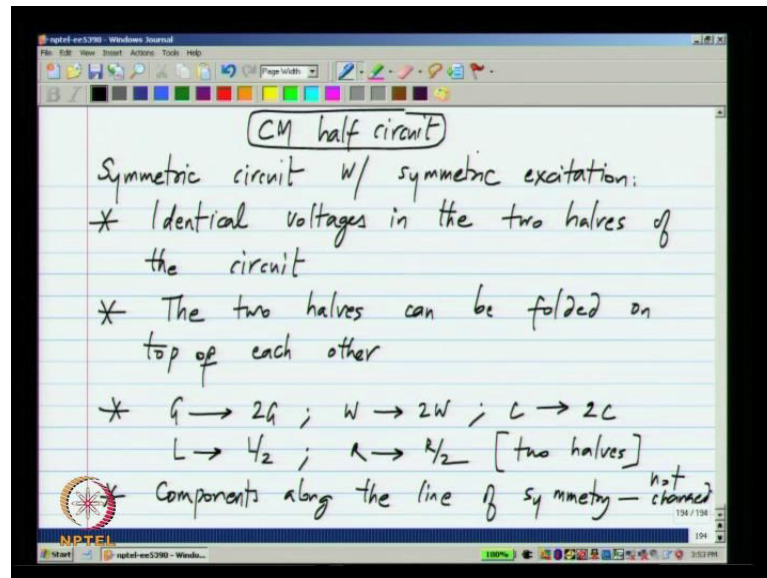 nptel-ee5390 - Windows Journal
File Edit View Insert Actions Tools Help
Page Width
B I
CM half circuit
Symmetric circuit w/ symmetric excitation:
* Identical voltages in the two halves of
the circuit
* The two halves can be folded on
top of each other
* G → 2G ; W → 2W ; C → 2C
L → L/2 ; R → R/2 [two halves]
* Components along the line of symmetry — not changed
194 / 194
194
NPTEL
Start nptel-ee5390 - Windo... 100% 3:53 PM